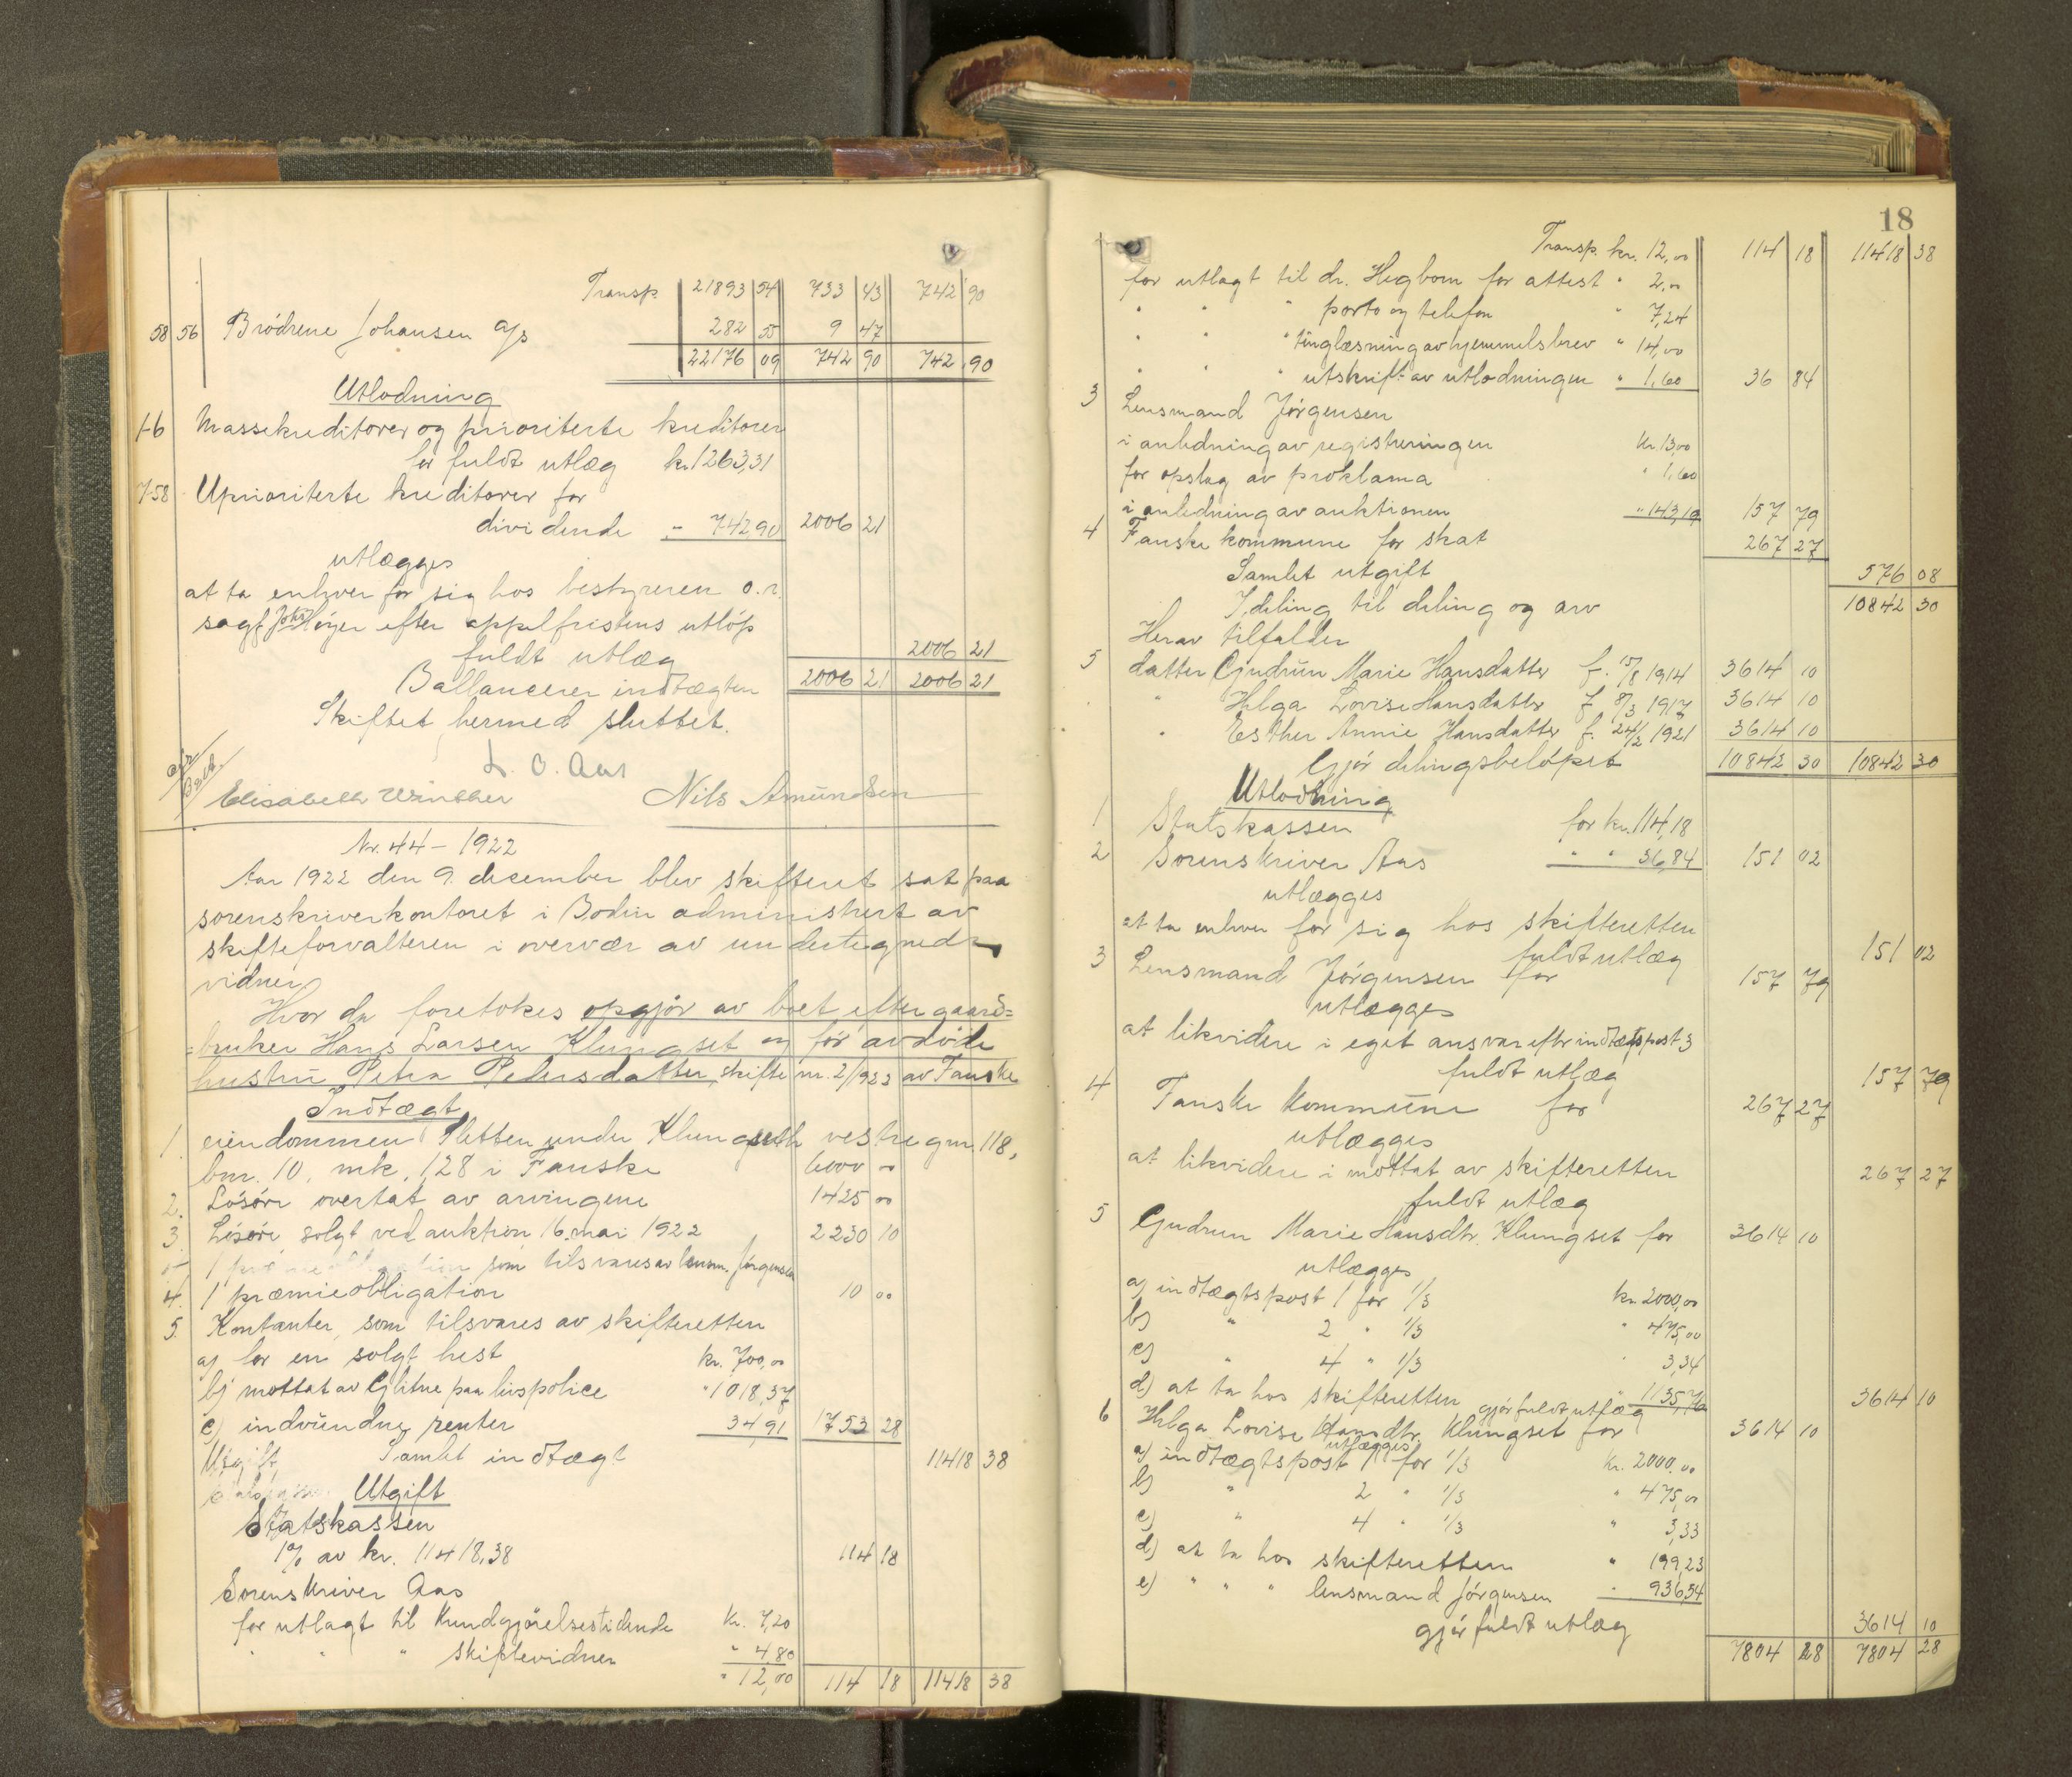 Transp. 21893 54 733 43 742 90
58 56 Brödrene Johansen a/s 282 55 9 47
22176 09 742 90 742 90
Utlodning
1-6 Massekreditorer og prioriterte kreditorer
for fuldt utlæg kr. 1263,31
7-58 Uprioriterte kreditorer for
dividende " 742,90 2006 21
utlægges
at ta enhver for sig hos bestyreren o.r.
sagf. Johs. Höyer efter appelfristens utlöp
fuldt utlæg 2006 21
Ballancerer indtægten 2006 21 2006 21
Skiftet hermed sluttet.
L. O. Aas
Elisabeth Winther Nils Amundsen
Nr. 44 - 1922
Aar 1922 den 9. december blev skifteret sat paa
sorenskriverkontoret i Bodin administrert av
skifteforvalteren i overvær av undertegnede
vidner
Hvor da foretokes opgjör av boet efter gaard=
=bruker Hans Larsen Klungset og för avdöde
hustru Petra Pedersdatter, skifte nr. 2/1922 av Fauske
Indtægt
1. eiendommen Sletten under Klungseth vestre gnr. 118,
bnr. 10, mk. 1,28 i Fauske 6000 00
2. Lösöre overtat av arvingene 1425 00
3. Lösöre solgt ved auktion 16. mai 1922 2230 10
som tilsvares av lensm. Jörgensen
4. 1 præmieobligation 10 00
5. Kontanter, som tilsvares av skifteretten
a) for en solgt hest kr. 700,00
b) mottat av Glitne paa livspolice " 1018,37
c) indvundne renter 34,91 1753 28
Utgift Samlet indtægt 11418 38
Utgift
Statskassen
1% av kr. 11418,38 114 18
Sorenskriver Aas
for utlagt til Kundgjörelsestidende Kr. 7,20
" " " skiftevidner " 4,80
" 12,00 114 18 11418 38
18
Transp. kr. 12,00 114 18 11418 38
for utlagt til dr. Hegbom for attest " 2,00
" " " porto og telefon " 7,24
" " " tinglæsning av hjemmelsbrev " 14,00
" " " utskrift av utlodningen " 1,60 36 84
3 Lensmand Jörgensen
i anledning av registreringen Kr. 13,00
for opslag av proklama " 1,60
i anledning av auktionen " 143,19 157 79
4 Fauske kommune for skat 267 27
Samlet utgift 576 08
I deling til deling og arv 10842 30
Herav tilfalder
5 datter Gudrun Marie Hansdatter f. 15/8 1914 3614 10
" Helga Lovise Hansdatter f. 8/3 1917 3614 10
" Esther Annie Hansdatter f. 24/2 1921 3614 10
Gjör delingsbelöpet 10842 30 10842 30
Utlodning
1 Statskassen for kr. 114,18
2 Sorenskriver Aas " " 36,84 151 02
utlægges
at ta enhver for sig hos skifteretten
fuldt utlæg 151 02
3 Lensmand Jörgensen for 157 79
utlægges
at likvidere i eget ansvar efter indtægtspost 3
fuldt utlæg 157 79
4 Fauske Kommune for 267 27
utlægges
at likvidere i mottat av skifteretten
fuldt utlæg 267 27
5 Gudrun Marie Hansdtr. Klungset for 3614 10
utlægges
a) indtægtspost 1 for 1/3 kr. 2000,00
b) " 2 " 1/3 " 475,00
c) " 4 " 1/3 " 3,34
d) at ta hos skifteretten " 1135,76
gjör fuldt utlæg 3614 10
6 Helga Lovise Hansdtr. Klungset for 3614 10
utlægges
a) indtægtspost 1 for 1/3 Kr. 2000,00
b) " 2 " 1/3 " 475,00
c) " 4 " 1/3 " 3,33
d) at ta hos skifteretten " 199,23
e) " " " lensmand Jörgensen " 936,54
gjör fuldt utlæg 3614 10
7804 28 7804 28